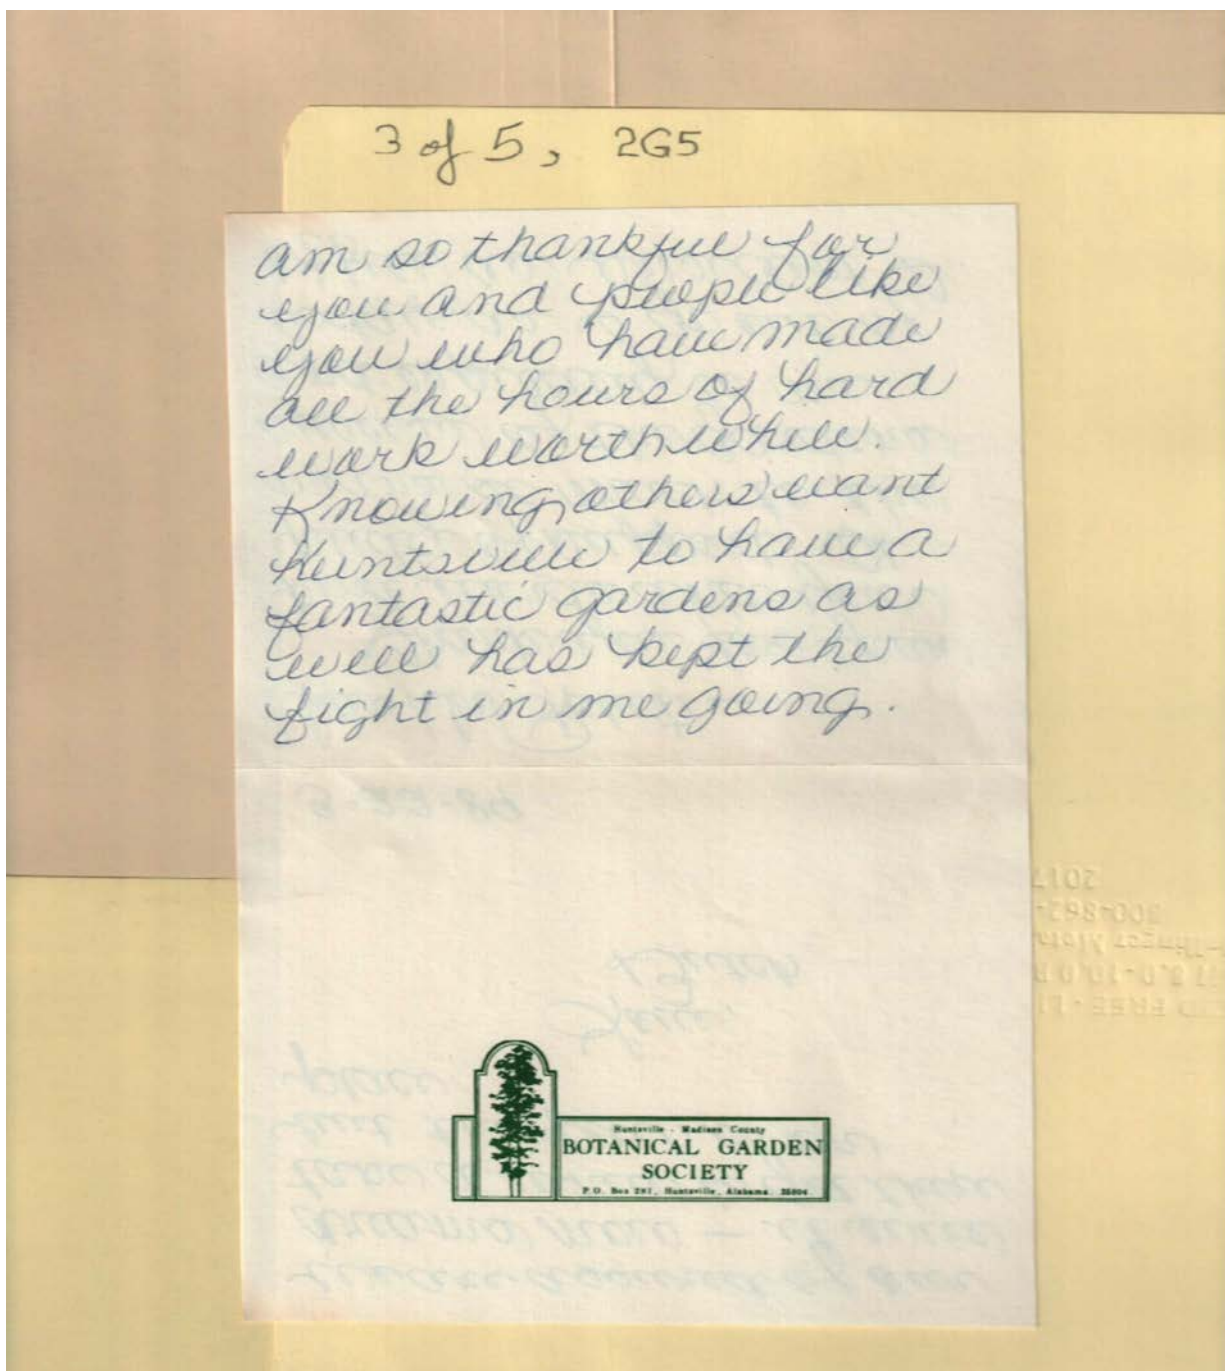 3 of 5, 2G5
am so thankful for
you and people like
you who have made
all the hours of hard
work worthwhile.
Knowing others want
Huntsville to have a
fantastic gardens as
well has kept the
fight in me going.
Huntsville - Madison County
BOTANICAL GARDEN
SOCIETY
P.O. Box 281, Huntsville, Alabama 35804